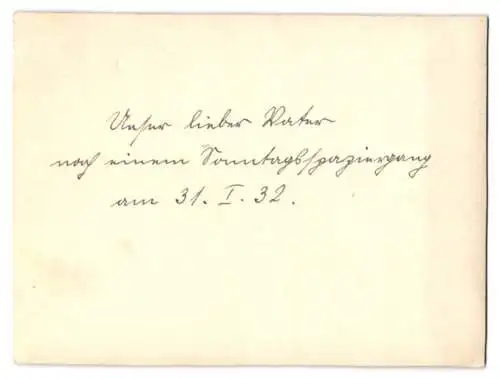 Unser lieber Vater
nach einem Sonntagsspaziergang
am 31. I. 32.